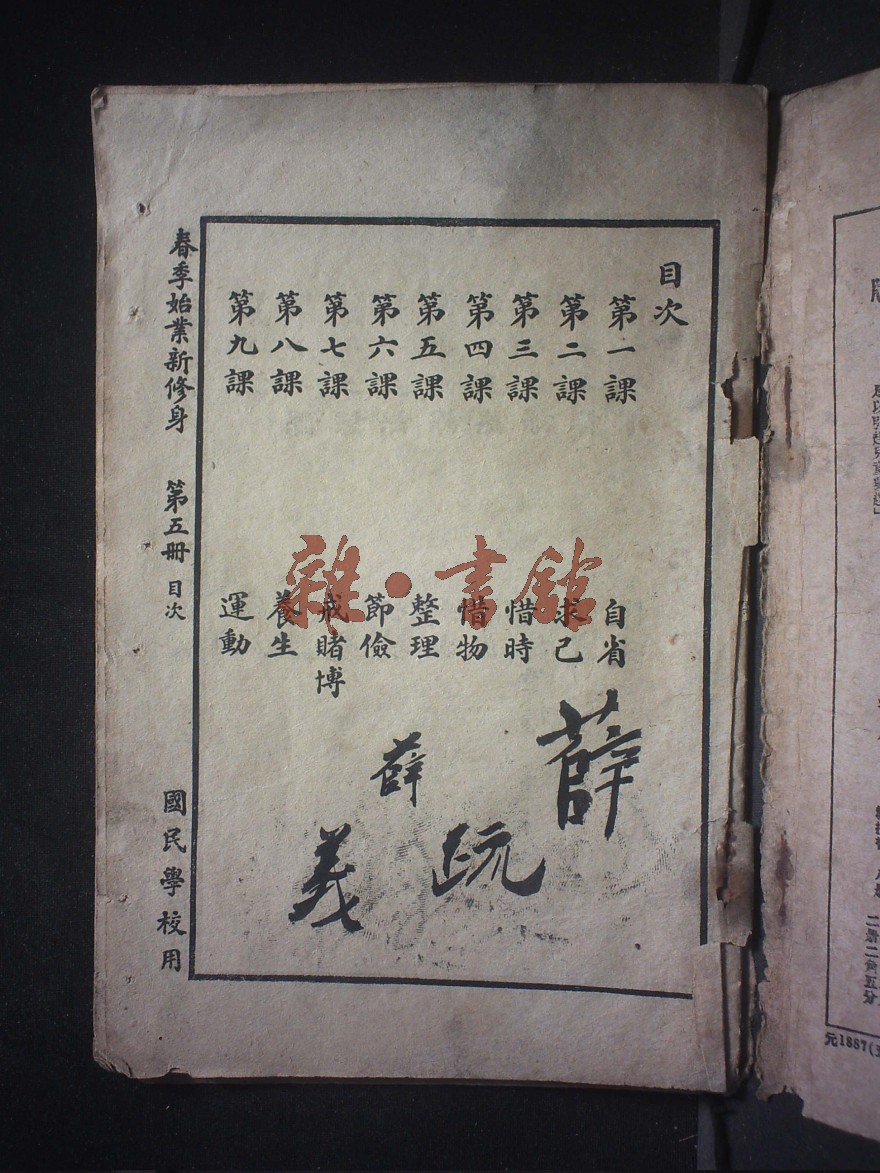 目次
第一課 自省
第二課 求己
第三課 惜時
第四課 惜物
第五課 整理
第六課 節儉
第七課 戒賭博
第八課 養生
第九課 運動
春季始業新修身 第五冊 目次 國民學校用
雜·書館
薛
薛
義
二册二角五分
元1887